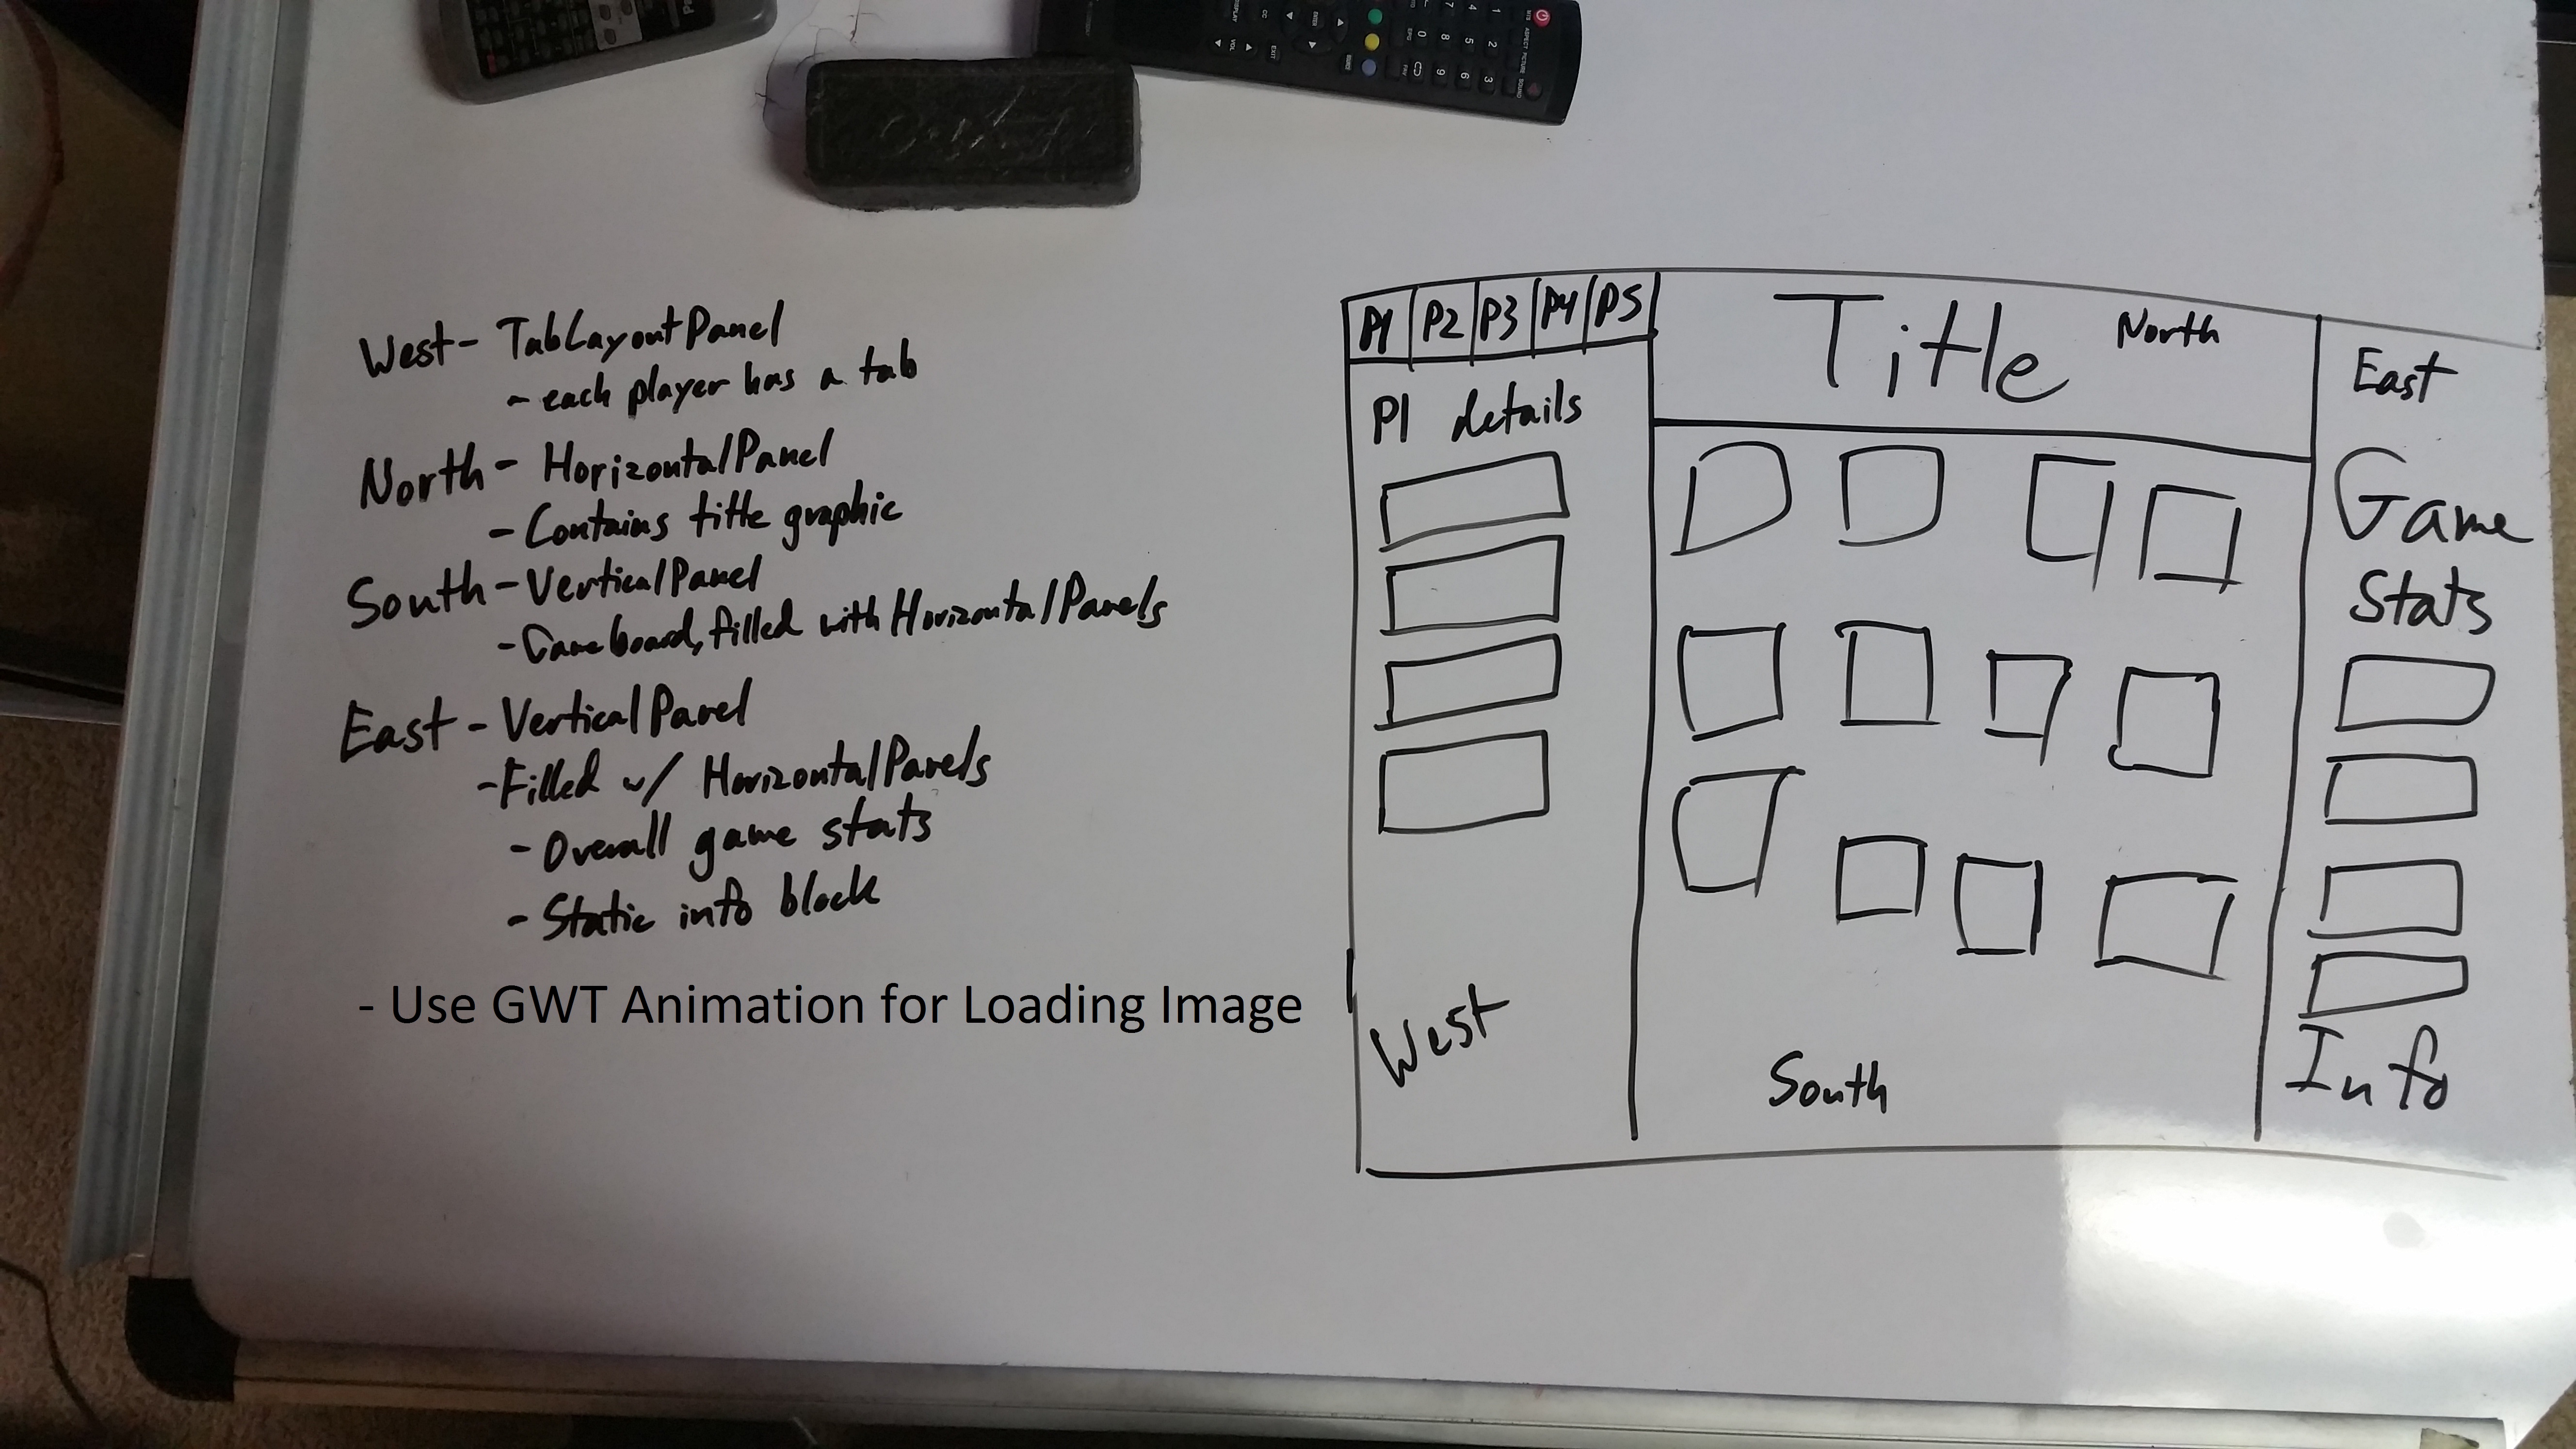 West - TabLayoutPanel
- each player has a tab
North - HorizontalPanel
- Contains title graphic
South - VerticalPanel
- Gameboard, filled with HorizontalPanels
East - VerticalPanel
- Filled w/ HorizontalPanels
- Overall game stats
- Static info block
- Use GWT Animation for Loading Image
P1 P2 P3 P4 P5
P1 details
West
Title North
South
East
Game
Stats
Info